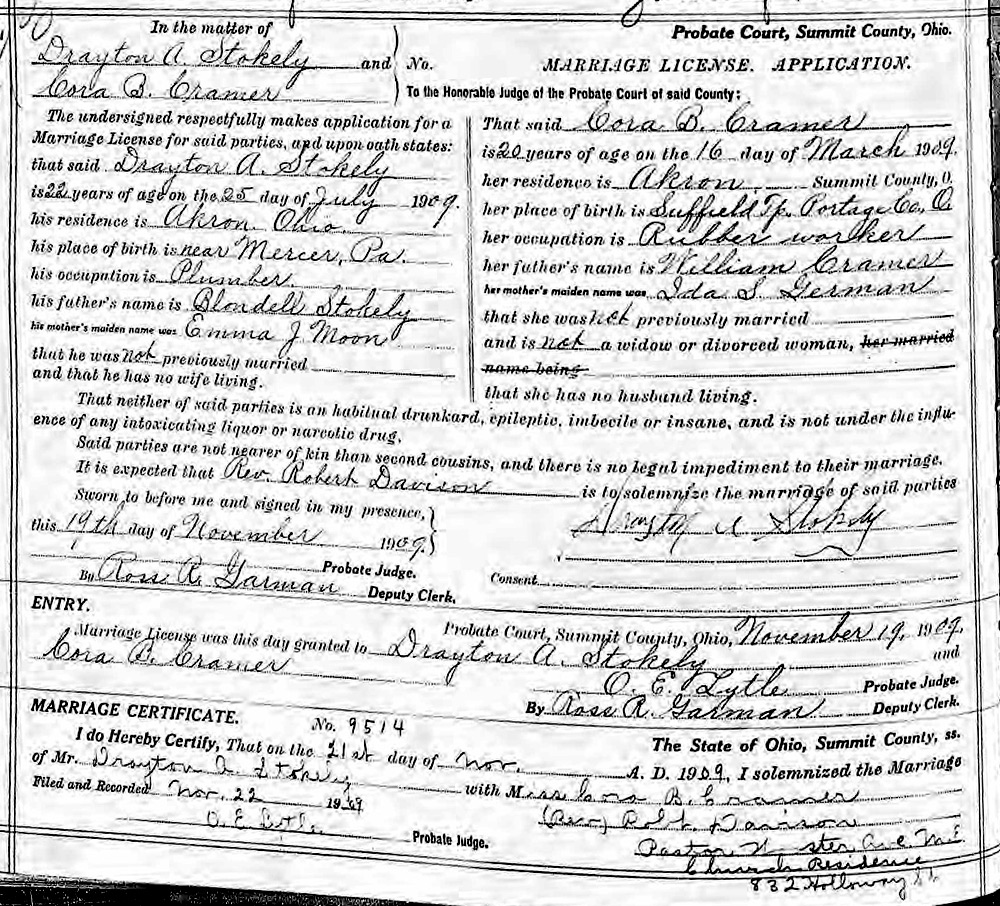 In the matter of
Drayton A. Stokely and
Cora B. Cramer
No.
Probate Court, Summit County, Ohio.
MARRIAGE LICENSE. APPLICATION.
To the Honorable Judge of the Probate Court of said County:
The undersigned respectfully makes application for a
Marriage License for said parties, and upon oath states:
that said Drayton A. Stokely
is 22 years of age on the 25 day of July 1909.
his residence is Akron, Ohio.
his place of birth is near Mercer, Pa.
his occupation is Plumber.
his father's name is Blondell Stokely
his mother's maiden name was Emma J. Moon
that he was not previously married
and that he has no wife living.
That said Cora B. Cramer
is 20 years of age on the 16 day of March 1909.
her residence is Akron, Summit County, O.
her place of birth is Suffield Tp. Portage Co., O.
her occupation is Rubber worker
her father's name is William Cramer
her mother's maiden name was Ida S. German
that she was not previously married
and is not a widow or divorced woman, her married
name being
that she has no husband living.
That neither of said parties is an habitual drunkard, epileptic, imbecile or insane, and is not under the influ-
ence of any intoxicating liquor or narcotic drug.
Said parties are not nearer of kin than second cousins, and there is no legal impediment to their marriage.
It is expected that Rev. Robert Davison is to solemnize the marriage of said parties
Sworn to before me and signed in my presence,
this 19th day of November 1909.
Drayton A Stokely
Probate Judge.
By Ross R. Garman Deputy Clerk.
Consent
ENTRY.
Probate Court, Summit County, Ohio, November 19, 1909.
Marriage License was this day granted to Drayton A. Stokely and
Cora B. Cramer
O. E. Lytle Probate Judge.
By Ross R. Garman Deputy Clerk.
MARRIAGE CERTIFICATE. No. 9514
The State of Ohio, Summit County, ss.
I do Hereby Certify, That on the 21st day of Nov. A. D. 1909, I solemnized the Marriage
of Mr. Drayton A. Stokely with Miss Cora B. Cramer
Filed and Recorded Nov. 22 1909
(Rev) Robt. Davison
O. E. Lytle Probate Judge.
Pastor Ave. M.E
Church Residence
832 Holloway St.